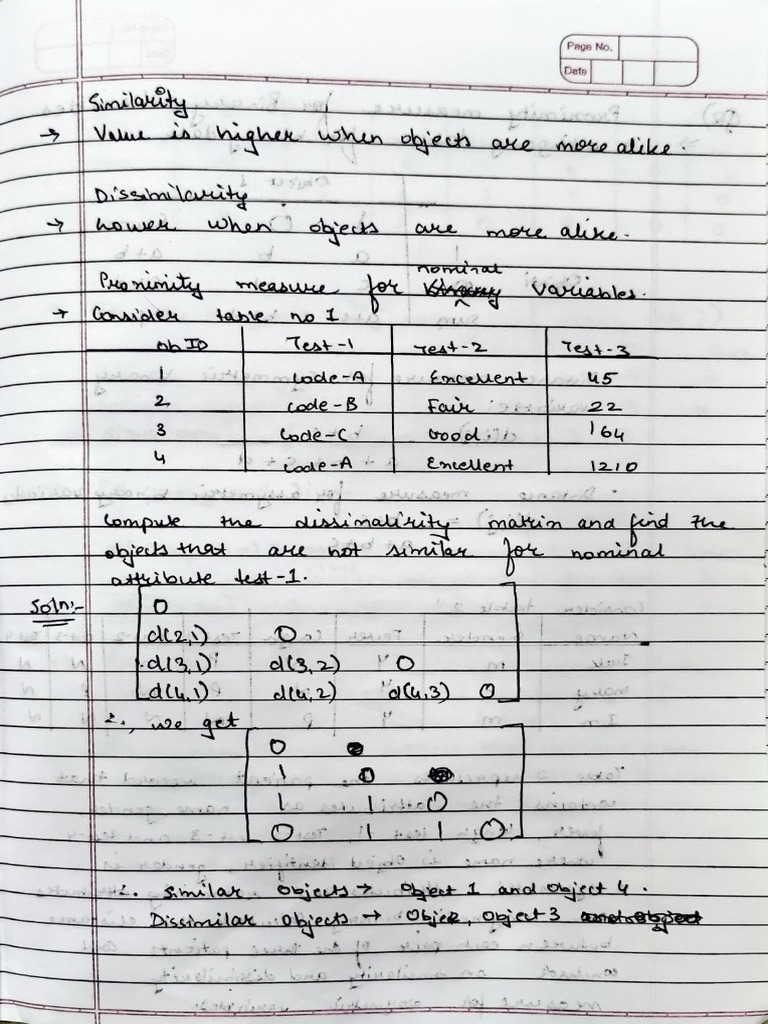 Page No.
Date
Similarity
→ Value is higher when objects are more alike.
Dissimilarity
→ Lower when objects are more alike.
nominal
Proximity measure for variables.
→ Consider table no 1
Ob ID Test-1 Test-2 Test-3
1 Code-A Excellent 45
2 Code-B Fair 22
3 Code-C Good 164
4 Code-A Excellent 1210
Compute the dissimalirity matrix and find the
objects that are not similar for nominal
attribute test-1.
Soln:-
0
d(2,1) 0
d(3,1) d(3,2) 0
d(4,1) d(4,2) d(4,3) 0
∴, we get
0
1 0
1 1 0
0 1 1 0
∴ Similar Objects → Object 1 and Object 4.
Dissimilar Objects → Objec2, Object 3